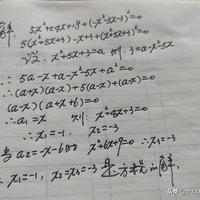 解:
5x²+24x+18+(-x²-5x-3)²=0
5(x²+5x+3)-x+3+(x²+5x+3)²=0
设: x²+5x+3=a 则: 3=a-x²-5x
∴ 5a-x+a-x²-5x+a²=0
∴ (a-x)(a+x)+5(a-x)+(a-x)=0
(a-x)(a+x+6)=0
∴ a₁=x 则: x²+4x+3=0
∴ x₁=-1, x₂=-3
当 a₂=-x-6时 x²+6x+9=0 ∴ x₃=-3
∴ x₁=-1, x₂=x₃=-3 是方程的解.